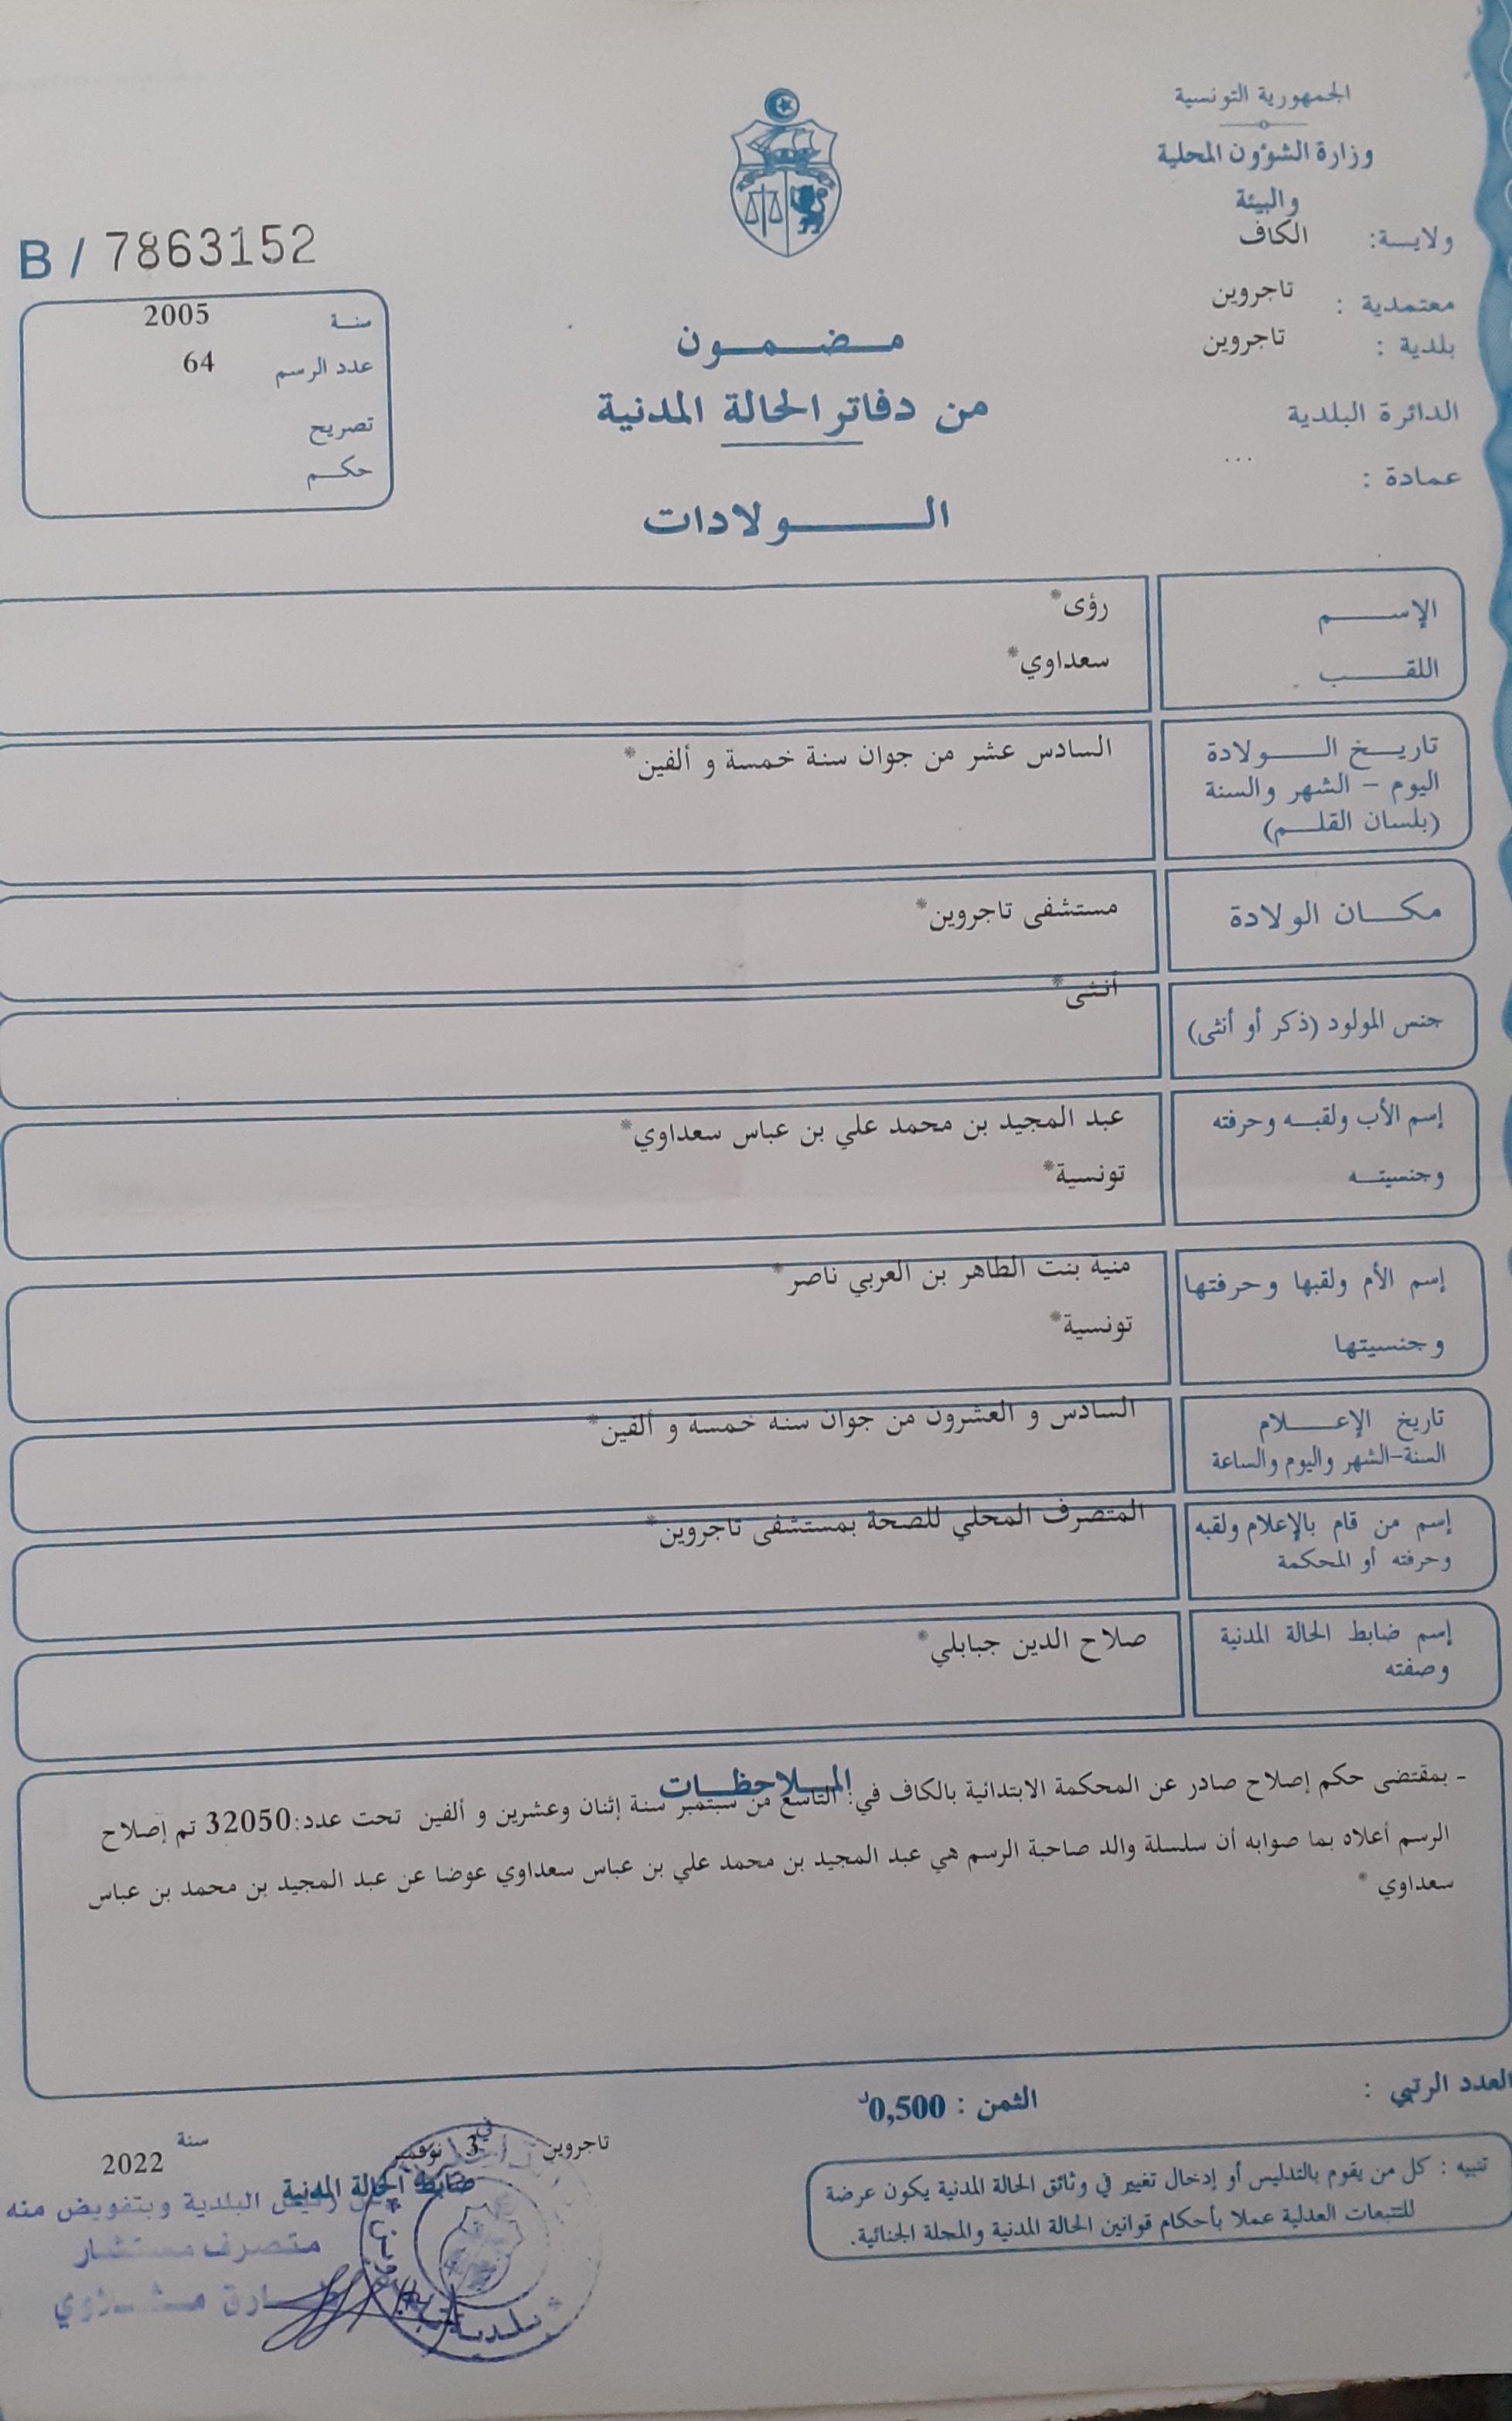 الجمهورية التونسية
وزارة الشؤون المحلية
والبيئة
ولايـة: الكاف
معتمدية : تاجروين
بلدية : تاجروين
الدائرة البلدية
عمادة : ...
B / 7863152
سنة 2005
عدد الرسم 64
تصريح
حكم
مضمون
من دفاتر الحالة المدنية
الولادات
الإسم رؤى*
اللقب سعداوي*
تاريخ الولادة السادس عشر من جوان سنة خمسة و ألفين*
اليوم - الشهر والسنة
(بلسان القلم)
مكان الولادة مستشفى تاجروين*
جنس المولود (ذكر أو أنثى) أنثى*
إسم الأب ولقبه وحرفته عبد المجيد بن محمد علي بن عباس سعداوي*
وجنسيته تونسية*
إسم الأم ولقبها وحرفتها منية بنت الطاهر بن العربي ناصر*
وجنسيتها تونسية*
تاريخ الإعلام السادس و العشرون من جوان سنة خمسة و ألفين*
السنة-الشهر واليوم والساعة
إسم من قام بالإعلام ولقبه المتصرف المحلي للصحة بمستشفى تاجروين*
وحرفته أو المحكمة
إسم ضابط الحالة المدنية صلاح الدين جبابلي*
وصفته
الملاحظات
- بمقتضى حكم إصلاح صادر عن المحكمة الابتدائية بالكاف في: التاسع من سبتمبر سنة إثنان وعشرين و ألفين تحت عدد:32050 تم إصلاح
الرسم أعلاه بما صوابه أن سلسلة والد صاحبة الرسم هي عبد المجيد بن محمد علي بن عباس سعداوي عوضا عن عبد المجيد بن محمد بن عباس
سعداوي *
العدد الرتبي :
الثمن : 0,500د
تنبيه : كل من يقوم بالتدليس أو إدخال تغيير في وثائق الحالة المدنية يكون عرضة
للتتبعات العدلية عملا بأحكام قوانين الحالة المدنية والمجلة الجنائية.
تاجروين في 3 نوفمبر سنة 2022
ضابط الحالة المدنية
رئيس البلدية وبتفويض منه
متصرف مستشار
بلدية